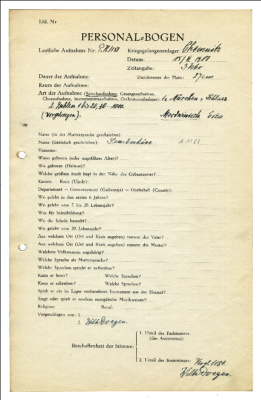 Lfd. Nr
PERSONAL-BOGEN
Lautliche Aufnahme Nr.: PK 1181 Kriegsgefangenenlager: Chemnitz
Datum: 1918
Zeitangabe: 3 Uhr
Dauer der Aufnahme: Durchmesser der Platte: 27 cm
Raum der Aufnahme:
Art der Aufnahme (Sprechaufnahme, Gesangsaufnahme,
Choraufnahme, Instrumentenaufnahme, Orchesteraufnahme): 1. Märchen
2. Zahlen 1 bis 20, 30-100.
Name (in der Muttersprache geschrieben):
Name (lateinisch geschrieben):
Vorname:
Wann geboren (oder ungefähres Alter)?
Wo geboren (Heimat)?
Welche größere Stadt liegt in der Nähe des Geburtsortes?
Kanton — Kreis (Ujedz):
Department — Gouvernement (Gubernija) — Grafschaft (County):
Wo gelebt in den ersten 6 Jahren?
Wo gelebt vom 7. bis 20. Lebensjahr?
Was für Schulbildung?
Wo die Schule besucht?
Wo gelebt vom 20. Lebensjahr?
Aus welchem Ort (Ort und Kreis angeben) stammt der Vater?
Aus welchem Ort (Ort und Kreis angeben) stammt die Mutter?
Welche Sprache als Muttersprache?
Welche Sprachen spricht er außerdem?
Kann er lesen? Welche Sprachen?
Kann er schreiben? Welche Sprachen?
Spielt er ein im Lager vorhandenes Instrument aus der Heimat?
Singt oder spielt er modern europäische Musikweisen?
Religion: Beruf:
Vorgeschlagen von: 1.
2. Wilh. Doegen.
Beschaffenheit der Stimme:
1. Urteil des Fachmannes
(des Assistenten):
2. Urteil des Kommissars:
Wilh. Doegen.